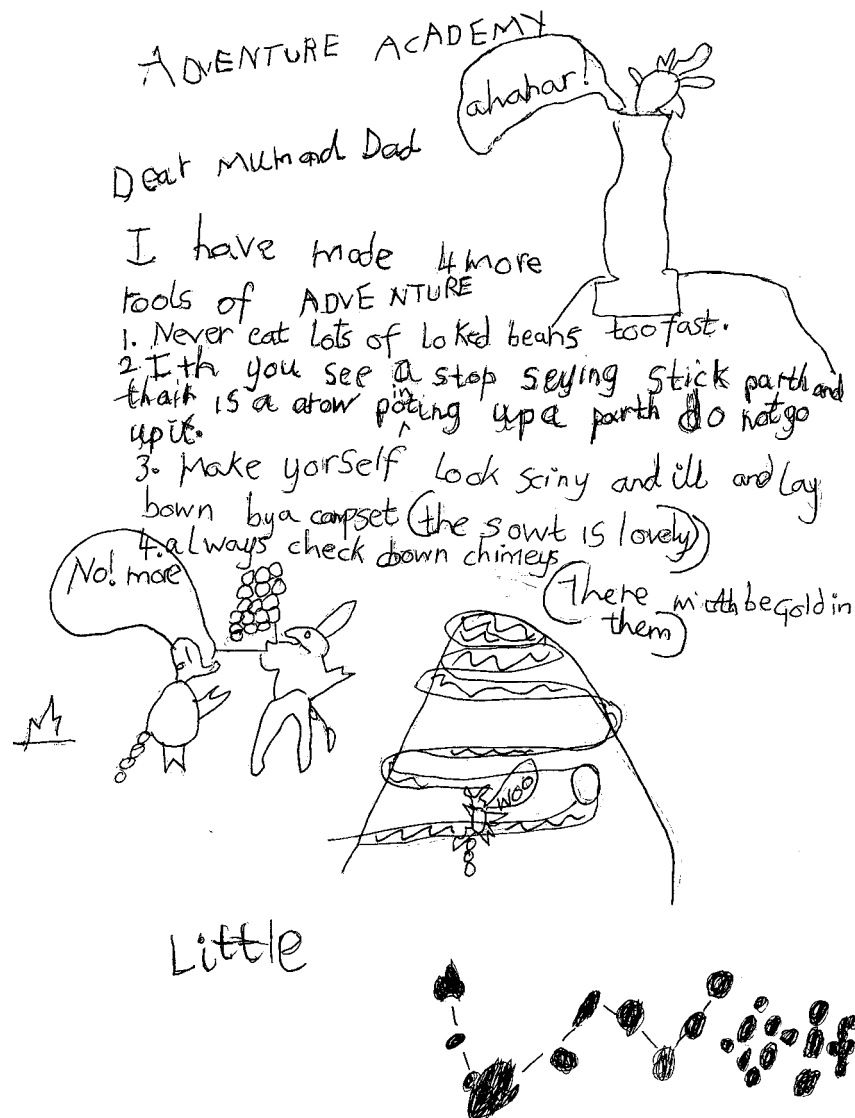 ADVENTURE ACADEMY
ahahar!
Dear Mum and Dad
I have made 4 more
rools of ADVENTURE
1. Never eat lots of loked beans too fast.
2. Ith you see a stop seying stick parth and
thair is a arow pointing up a parth do not go
up it.
3. Make yorself look sciny and ill and lay
bown by a campset (the sowt is lovely)
4. always check down chimeys
(There mithth be Gold in
them)
No! more
WOO
Little
Wolf